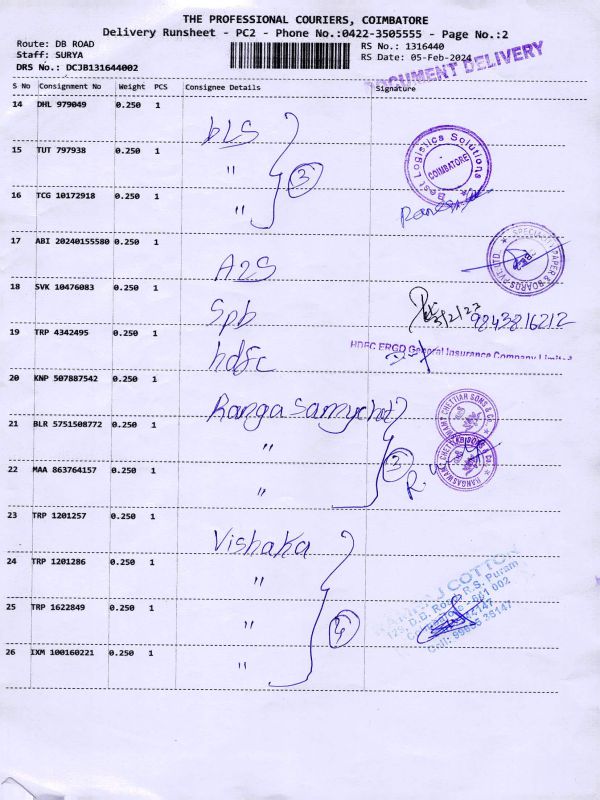 THE PROFESSIONAL COURIERS, COIMBATORE
Delivery Runsheet - PC2 - Phone No.:0422-3505555 - Page No.:2
Route: DB ROAD
Staff: SURYA
DRS No.: DCJB131644002
RS No.: 1316440
RS Date: 05-Feb-2024
DOCUMENT DELIVERY
S No Consignment No Weight PCS Consignee Details Signature
14 DHL 979049 0.250 1 bLS
15 TUT 797938 0.250 1 "
3
Best Logistics Solutions
COIMBATORE
16 TCG 10172918 0.250 1 "
17 ABI 20240155580 0.250 1 A2S
PAPER & BOARDS PVT. LTD.
18 SVK 10476083 0.250 1 Spb
9843816212
19 TRP 4342495 0.250 1 hdfc
HDFC ERGO General Insurance Company Limited
20 KNP 507887542 0.250 1 Rangasamychet
21 BLR 5751508772 0.250 1 "
CHETTIAR SONS & CO.
22 MAA 863764157 0.250 1 "
RANGASWAMY CHETTIAR SONS & CO.
23 TRP 1201257 0.250 1 Vishaka
24 TRP 1201286 0.250 1 "
COTTON
D.B. Road, R.S. Puram
25 TRP 1622849 0.250 1 "
4
26 IXM 100160221 0.250 1 "